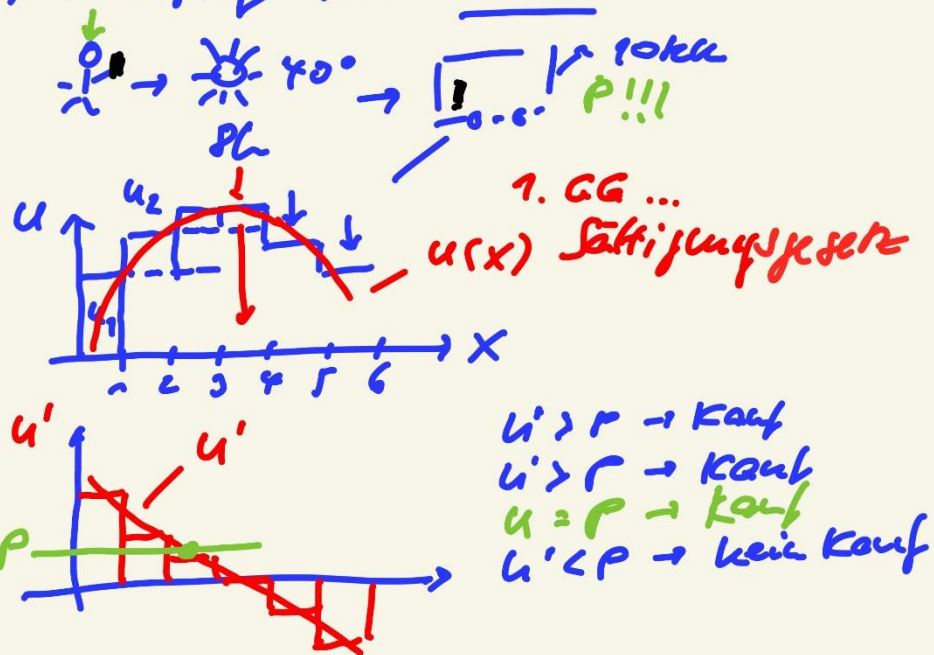 40°
10km
P!!!
SG
1. GG ...
u(x) Sättigungsgesetz
u
u₂
u₁
x
1 2 3 4 5 6
u'
u'
P
u' > P → Kauf
u' > P → Kauf
u = P → Kauf
u' < P → kein Kauf